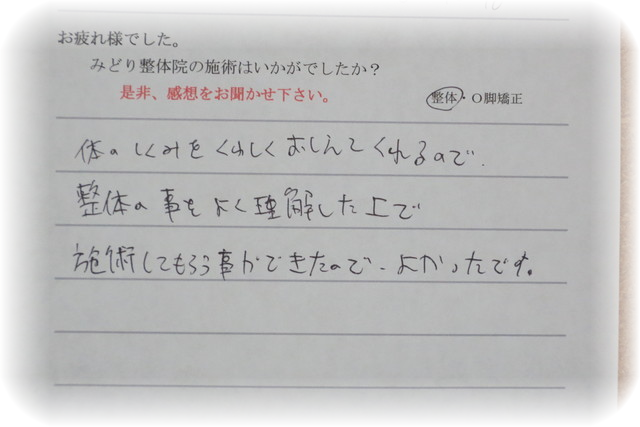 お疲れ様でした。
みどり整体院の施術はいかがでしたか？
是非、感想をお聞かせ下さい。
整体・O脚矯正
体のしくみをくわしくおしえてくれるので、
整体の事をよく理解した上で
施術してもらう事ができたので、よかったです。